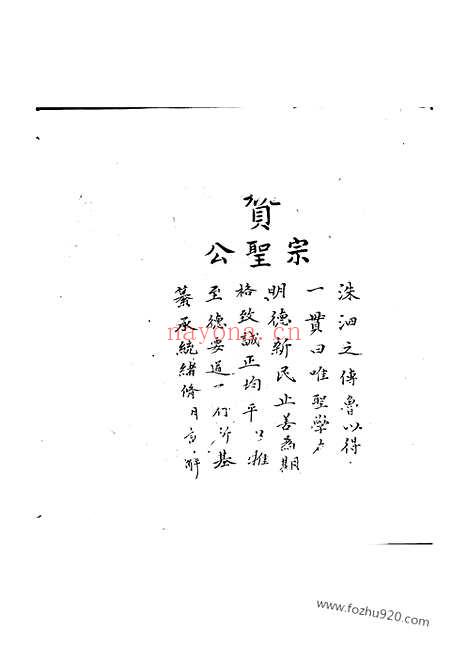 宗聖公
洙泗之傳魯以得
一貫曰唯聖學
明德新民止善為期
格致誠正均平推
至德要道行所基
纂承統緒修
nayona.cn
www.fozhu920.com